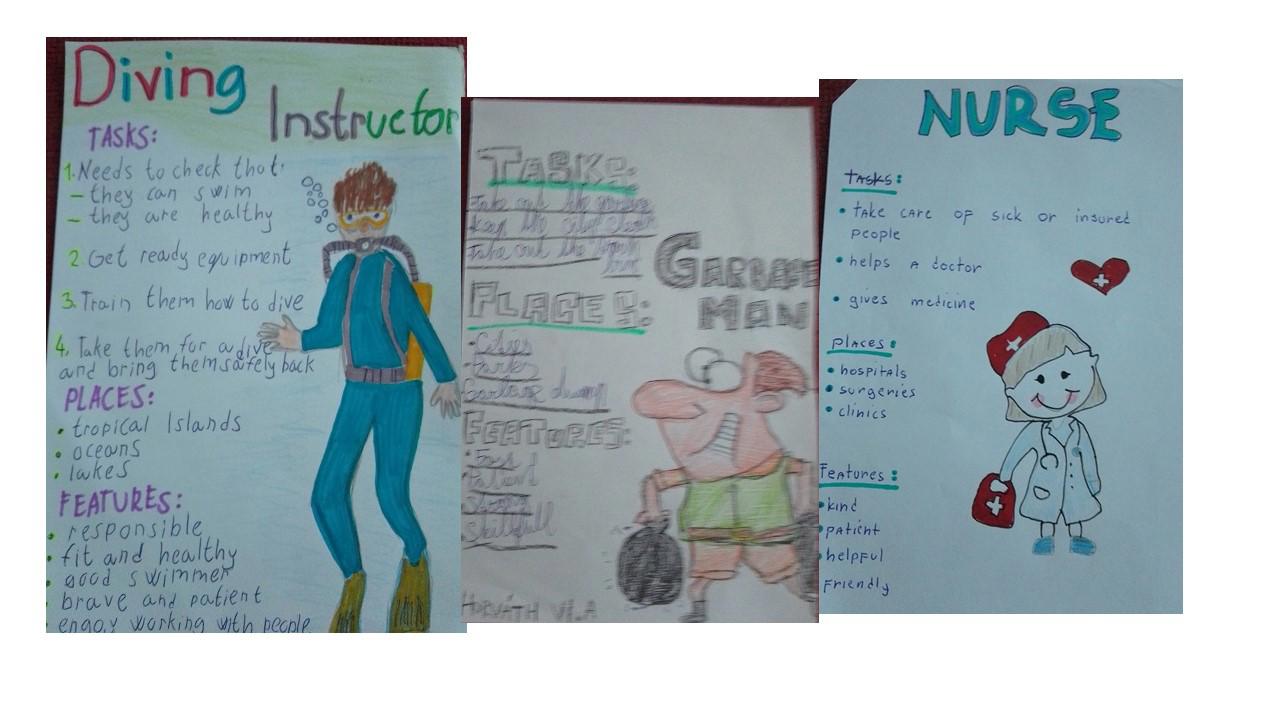 Diving
Instructor
TASKS:
1. Needs to check that:
– they can swim
– they are healthy
2. Get ready equipment
3. Train them how to dive
4. Take them for a dive
and bring them safely back
PLACES:
• tropical Islands
• oceans
• lakes
FEATURES:
• responsible
• fit and healthy
• good swimmer
• brave and patient
• engoy working with people
TASKS:
take out the
keep the city clean
take out the
GARBAGE
MAN
PLACES:
• Cities
• Parks
Garbage dump
FEATURES:
• Fast
Patient
Strong
Skillfull
HORVÁTH VI.A
NURSE
TASKS:
• take care of sick or insured
people
• helps a doctor
• gives medicine
places:
• hospitals
• surgeries
• clinics
Features:
• kind
• patient
• helpful
Friendly